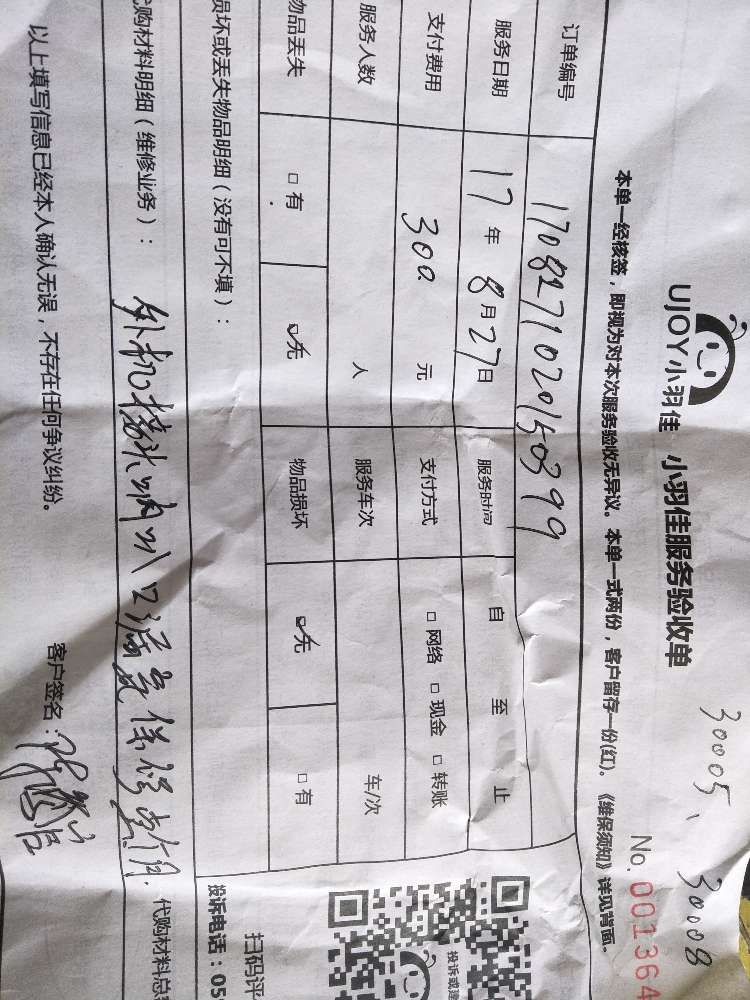 30005、30008
UJOY小羽佳 小羽佳服务验收单
No.001364
本单一经核签，即视为对本次服务验收无异议。本单一式两份，客户留存一份(红)。《维保须知》详见背面。
订单编号 1708271020150399
服务日期 17年8月27日 服务时间 自 至 止
支付费用 300 元 支付方式 □网络 □现金 □转账
服务人数 人 服务车次 车/次
物品丢失 □有 ☑无 物品损坏 ☑无 □有
损坏或丢失物品明细（没有可不填）：
投诉或建
扫码评
投诉电话：05
购材料明细（维修业务）： 外机接头
代购材料总
以上填写信息已经本人确认无误，不存在任何争议纠纷。 客户签名：